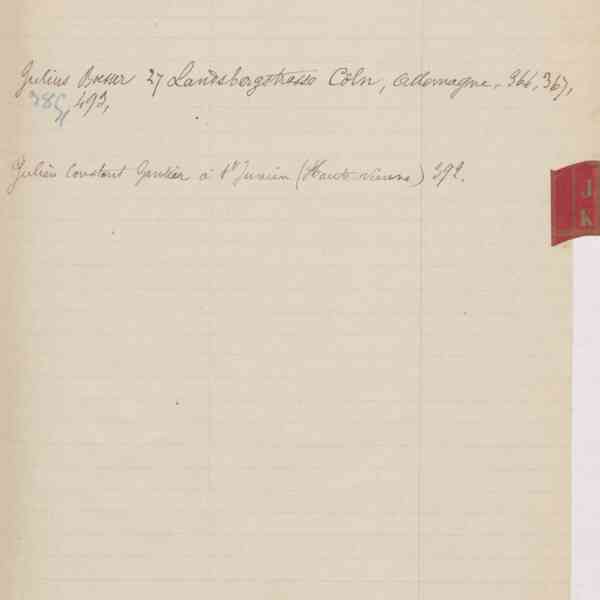 Julius Boeser 27 Landsbergstrasse Cöln, Allemagne, 366, 367,
385, 493,
Julien Constant Gautier à St Junien (Haute-Vienne) 392.
J
K